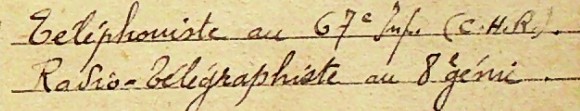 Téléphoniste au 67e Inf. (C.H.R.).
Radio-télégraphiste au 8e génie.